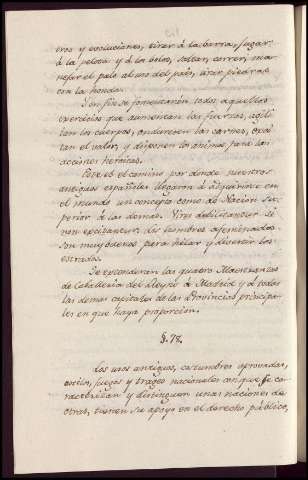 ros y evoluciones, tirar á la barra, jugar
á la pelota y á la bolos, saltar, correr, ma
nejar el palo al uso del país, tirar piedras
con la honda.
Por fin se fomentarán todos aquellos
exercicios que aumentan las fuerzas, agili
tan los cuerpos, endurecen las carnes, exci
tan el valor, y disponen los ánimos para las
acciones heróicas.
Este es el camino por donde nuestros
antiguos españoles llegaron á adquirirse en
el mundo un concepto como de Nacion su
perior á las demas. Vires debilitantur si
non excitantur: los hombres afeminados
son muy buenos para bailar y divertir los
estrados.
Se extenderán las quatro Maestranzas
de Caballería del Reyno á Madrid y á todas
las demas capitales de las Provincias principa
les en que haya proporcion.
§. 78.
Los usos antiguos, costumbres aprovadas,
juegos y trages nacionales con que se ca
racterizan y distinguen unas naciones de
otras, tienen su apoyo en el derecho público,